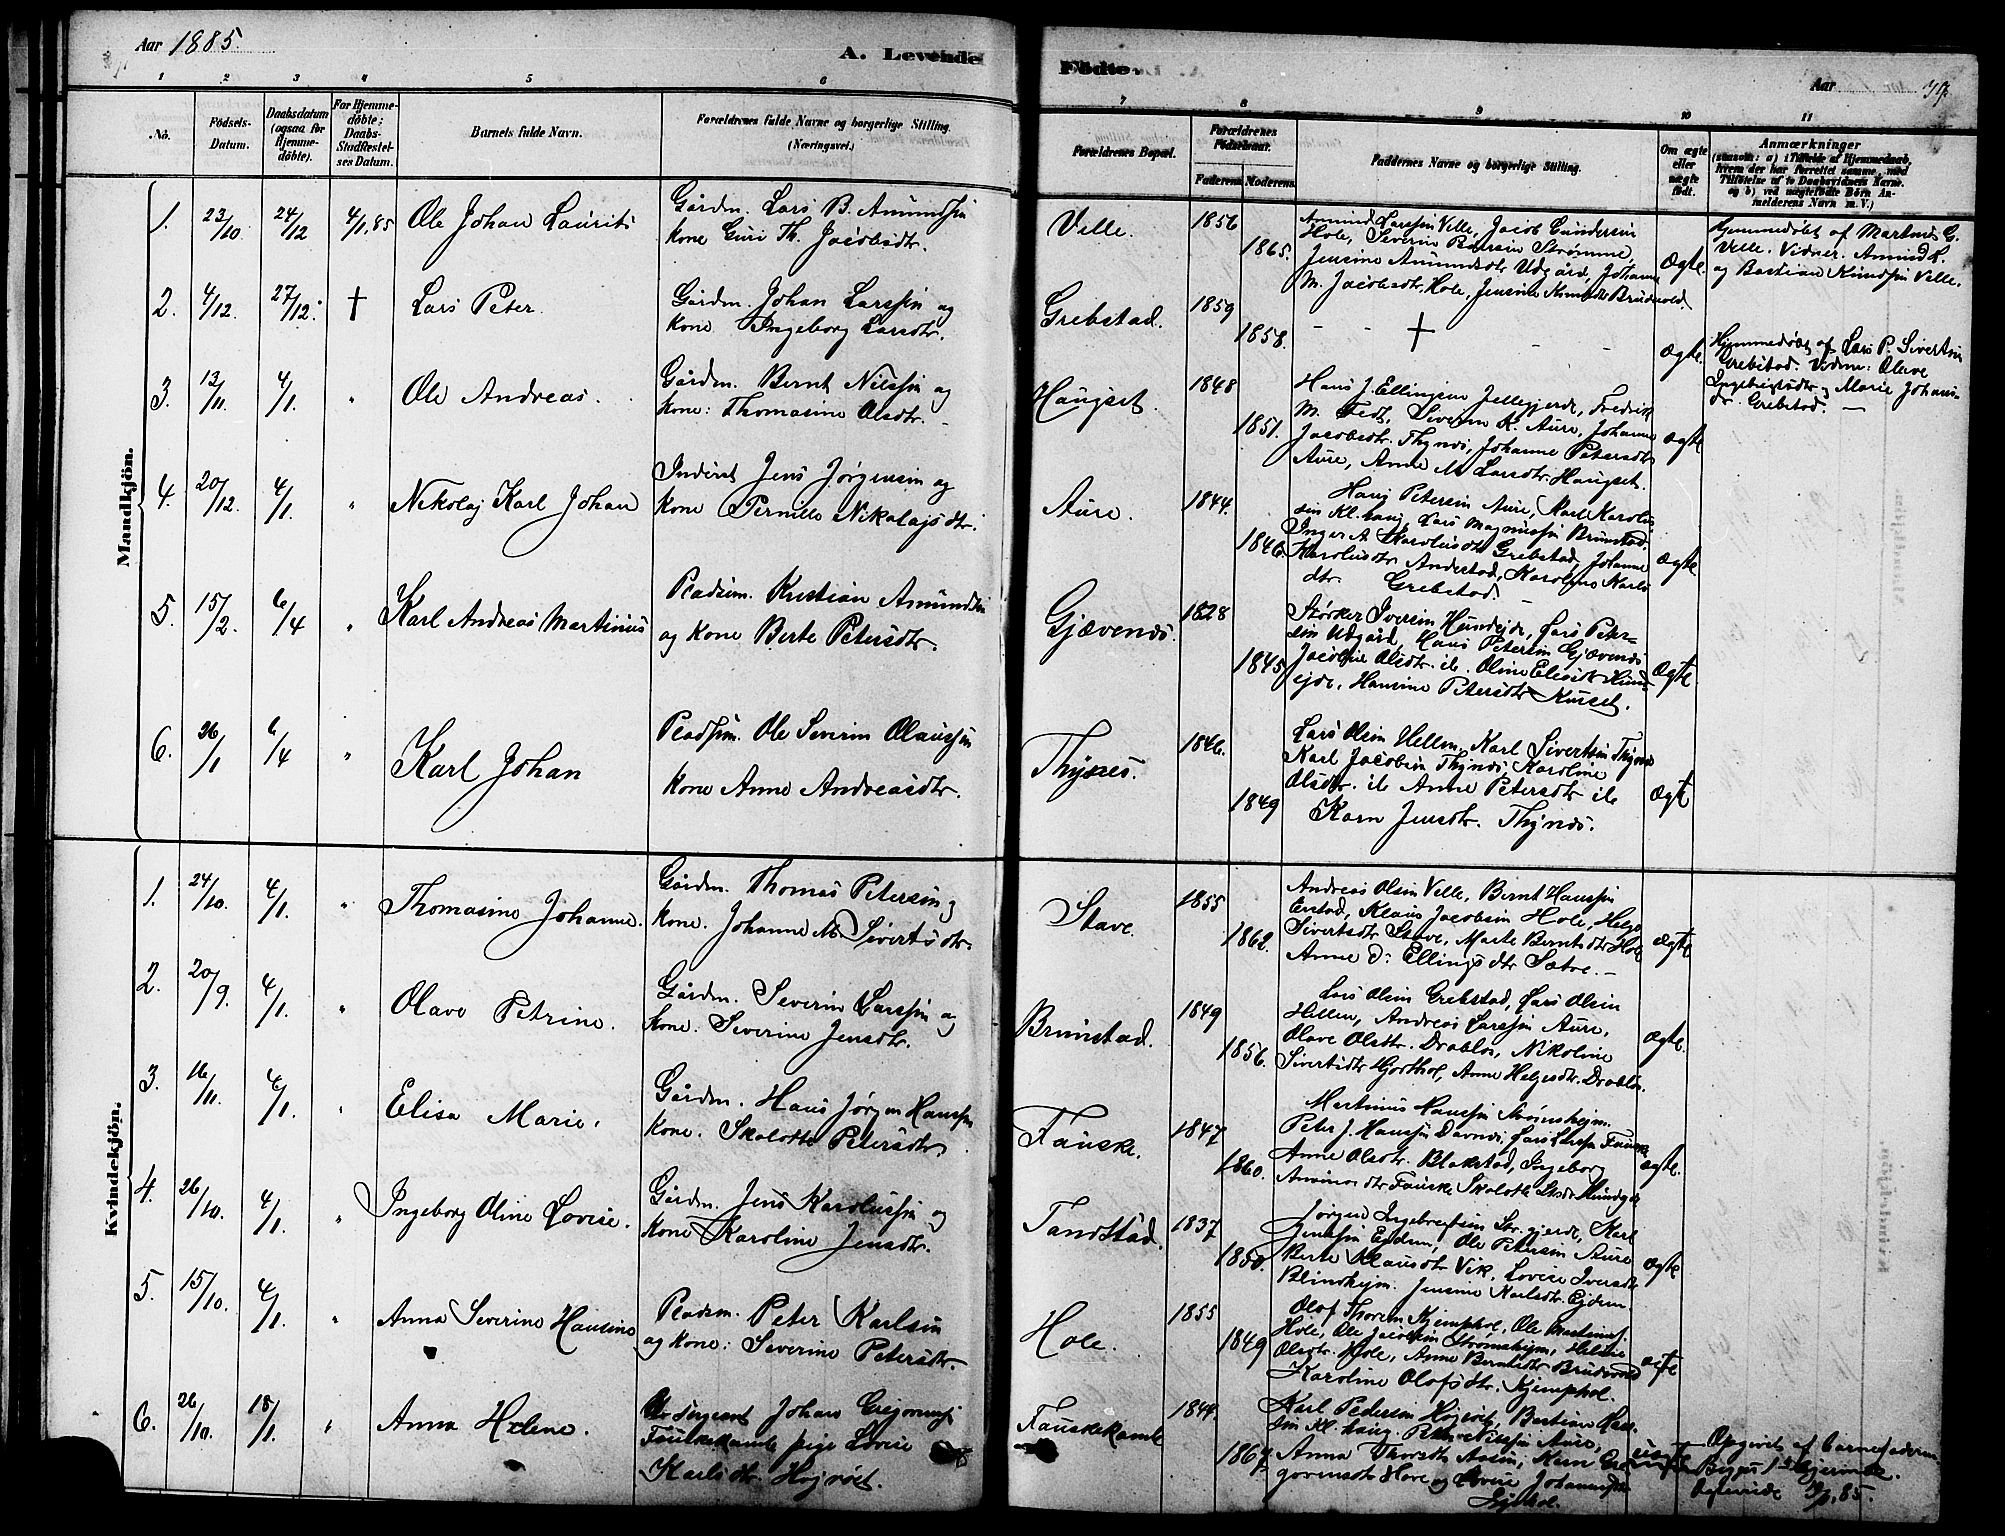 Aar 1885.
A. Levende
Fødte.
Aar
1 2 3 4 5 6 7 8 9 10 11
No.
Fødsels-Datum.
Daabsdatum (ogsaa for Hjemme-døbte).
For Hjemme-døbte; Daabs-Stadfæstel-ses Datum.
Barnets fulde Navn.
Forældrenes fulde Navne og borgerlige Stilling.
(Næringsvei.)
Forældrenes Bopæl.
Forældrenes Fødselsaar.
Faderens. Moderens.
Faddernes Navne og borgerlige Stilling.
Om ægte eller uægte født.
Anmærkninger
(saasom: a) i Tilfælde af Hjemmedaab, hvem der har forrettet samme, med Tilføielse af to Daabsvidners Navne. og b) ved uægtefødte Børn An-melderens Navn m. V.)
Mandkjön.
1. 23/10. 24/12 4/1.85 Ole Johan Laurits
Gårdm. Lars B. Amundsin
kone Guri Th. Jacobsdtr.
Velle. 1856 1865.
Amund Larssin Velle, Jacob Gundersin
Hole, Severin Strømme,
Jensine Amundsdtr Udgård, Johanne
M. Jacobsdtr. Hole, Jensine Knudsdtr Brudevold.
Ægte
Hjemmedøbt af Martinus G.
Velle. Vidner. Amund K.
og Bastian Knudsin Velle.
2. 4/12. 27/12. † Lars Peter.
Gårdm. Johan Larssin og
kone Ingeborg Larsdtr.
Grebstad. 1859 1858.
- - † - -
Ægte.
Hjemmedøbt af Lars P. Sivertsin
Grebstad. Vidner: Olave
Ingebrigtsdtr og Marie Johans-
dr. Grebstad. —
3. 13/11. 4/1. " Ole Andreas.
Gårdm. Bernt Nilssin og
kone: Thomasine Olsdtr.
Haugset. 1848 1851.
Hans J. Ellingsin Jellegjerde, Fredrik
M. Fedt, Severin K. Aure, Johanne
Jacobsdtr. Thynes, Johanne Petersdtr
Aure, Anne M. Larsdtr. Haugset.
Ægte
4. 20/12. 4/1. " Nikolaj Karl Johan
Inderst Jens Jørgensin og
kone Pernille Nikolajsdtr.
Aure. 1844. 1846.
Hans Petersin Aure, Karl Karolus
sin Kl.haug, Lars Magnussin Brunstad,
Inger A Karolusdtr Grebstad, Johanne
Karolusdtr Andestad, Karoline Karls
dtr. Grebstad. —
Ægte
5. 15/2. 6/4 " Karl Andreas Martinus
Pladsm. Kristian Amundsin
og kone Berte Petersdtr.
Gjævenes. 1828 1845
Størker Iversin Hundejde, Lars Peter-
sin Udgård, Hans Petersin Gjævenes
Jacobine Olsdtr. ib. Oline Eliasdtr Hund-
ejde, Hansine Petersdtr Kurset.
Ægte
6. 26/1 6/4 " Karl Johan
Pladsm. Ole Severin Olaussin
kone Anne Andreasdtr.
Thynes. 1846. 1849
Lars Olsin Hellen, Karl Sivertsin Thynes
Karl Jacobsin Thynes, Karoline
Olsdtr. ib Anne Petersdtr ib
Karn Jensdtr. Thynes.
Ægte
Kvindekjön.
1. 24/10. 4/1. " Thomasine Johanne.
Gårdm. Thomas Petersin og
kone. Johanne M. Sivertsdtr.
Stave. 1855 1862.
Andreas Olsin Velle, Bernt Hanssin
Erstad, Klaus Jacobsin Hole, Helga
Sivertsdtr Stave, Marte Berntsdtr Hole
Anne D: Ellingsdtr Sætre. —
Ægte
2. 20/9. 4/1. " Olave Petrine.
Gårdm. Severin Larssin og
kone. Severine Jensdtr.
Brunstad. 1849 1856.
Lars Olsin Grebstad, Lars Olsin
Hellen, Andreas Larssin Aure,
Olave Olsdtr. Drabløs, Nikoline
Sivertsdtr Hjorthol, Anne Helgesdtr. Drabløs.
Ægte.
3. 16/11. 6/1. " Elisa Marie.
Gårdm. Hans Jørgen Hanssin
kone. Skolotte Petersdtr
Fauske. 1847 1860.
Martinus Hanssin Strømshejm.
Peter J. Hanssin Davnes, Lars Larssin Fauske
Anne Olsdtr. Blakstad, Ingeborg
dtr Fauske
ægte.
4. 26/10. 4/1. " Ingeborg Oline Lovise.
Gårdm. Jens Karolussin og
kone Karoline Jensdtr.
Tandstad. 1837 1850.
Jørgen Ingebregtsin gjerde, Karl
Jenssin Ejdem, Ole Petersin Aure
Berte Klausdtr Vik, Lovise Iversdtr
Blindhejm. Jensine Karlsdtr. Ejdem.
ægte
5. 15/10. 4/1. " Anna Severine Hansine
Pladsm. Peter Karlsin
og kone: Severine Petersdtr.
Hole. 1855 1849
Olof Thoresin Kjemphol, Ole Martinus.
Hole, Ole Jacobsin Strømshejm, Helene
Olsdtr. Hole, Anne Berntsdtr Brudevold
Karoline Olofsdtr. Kjemphol.
ægte
6. 26/10. 18/1. " Anna Helene.
Sergeant Johan Gregoriussin
Fauskekamb pige Lovise
Karlsdtr. Højvolt.
Fauskekamb 1844. 1867
Karl Pedersin Højvolt, Bastian
sin Kl.haug. Peter Nilssin Aure,
Anna Thorsdtr Aasin, Karn Gre-
goriusdtr Hove og Lovise Johannesdtr
uægte
Opgivet af barnefaderen
85.